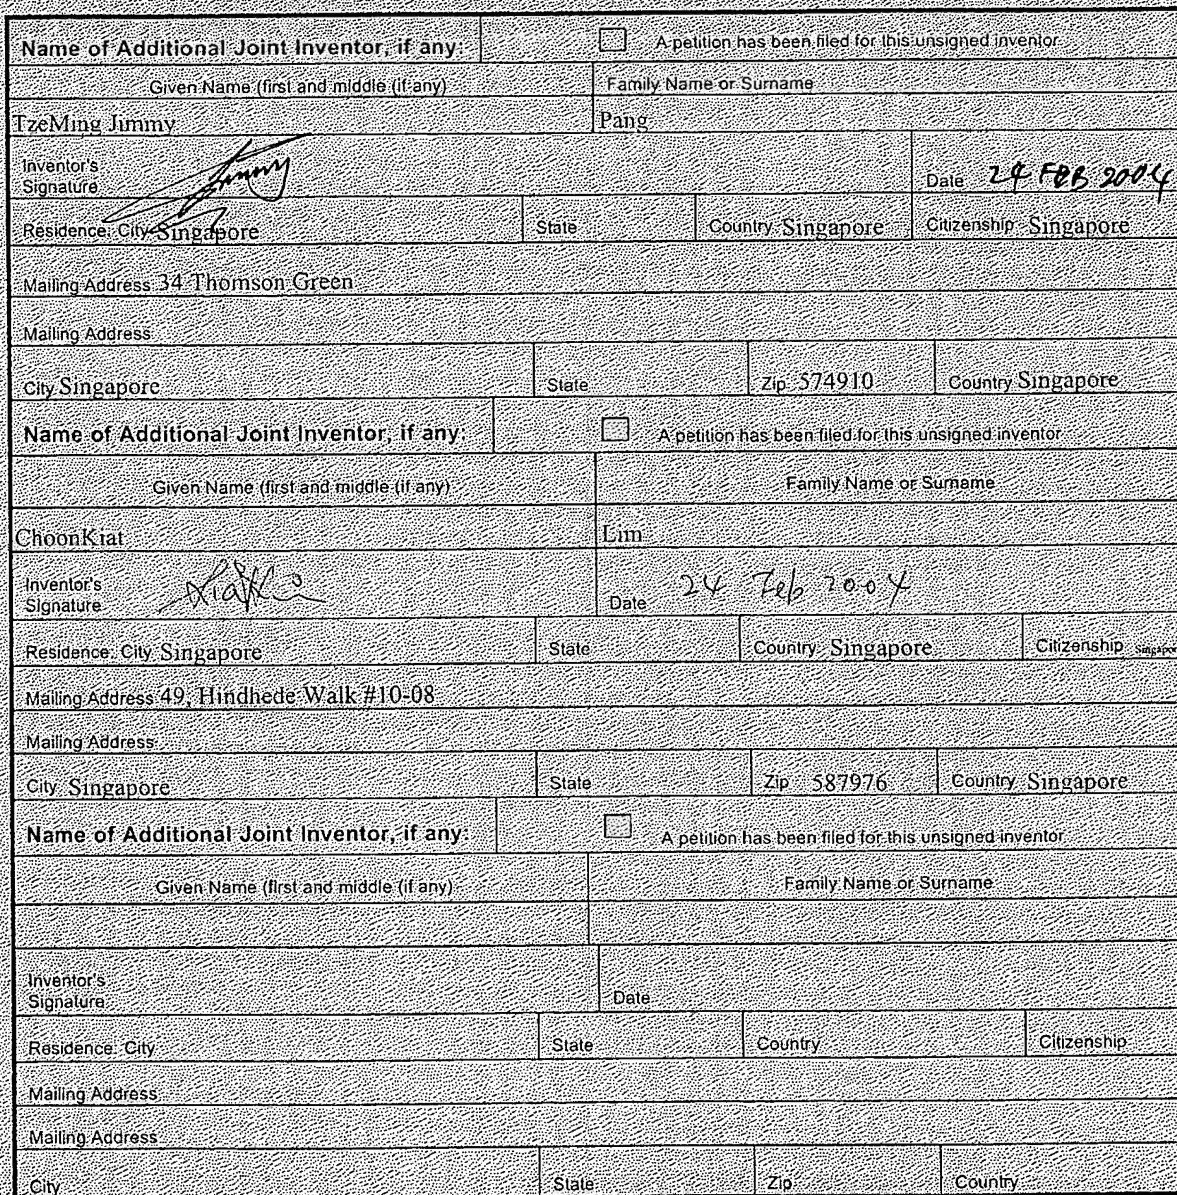 Name of Additional Joint Inventor, if any: A petition has been filed for this unsigned inventor
Given Name (first and middle (if any) Family Name or Surname
TzeMing Jimmy Pang
Inventor's
Signature Jimmy Date 24 FEB 2004
Residence: City Singapore State Country Singapore Citizenship Singapore
Mailing Address 34 Thomson Green
Mailing Address
City Singapore State Zip 574910 Country Singapore
Name of Additional Joint Inventor, if any: A petition has been filed for this unsigned inventor
Given Name (first and middle (if any) Family Name or Surname
ChoonKiat Lim
Inventor's
Signature Date 24 Feb 2004
Residence: City Singapore State Country Singapore Citizenship Singapor
Mailing Address 49, Hindhede Walk #10-08
Mailing Address
City Singapore State Zip 587976 Country Singapore
Name of Additional Joint Inventor, if any: A petition has been filed for this unsigned inventor
Given Name (first and middle (if any) Family Name or Surname
Inventor's
Signature Date
Residence: City State Country Citizenship
Mailing Address
Mailing Address
City State Zip Country